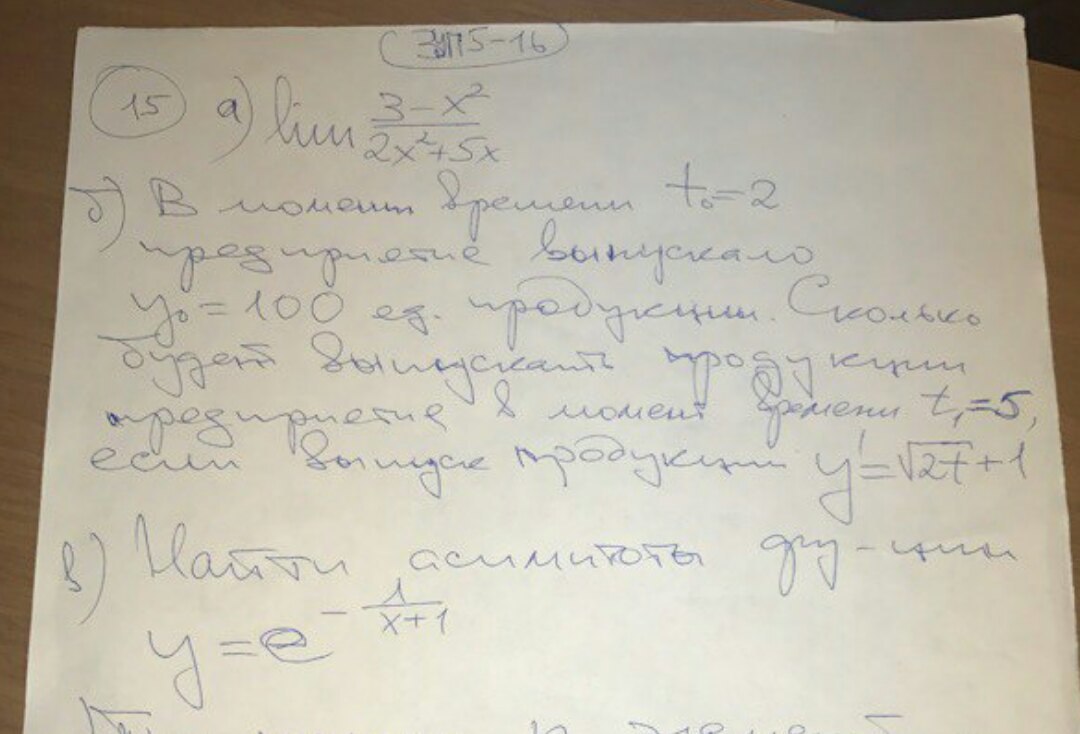 15-16
15 а) lim (3-x²)/(2x²+5x)
б) В момент времени t₀=2
предприятие выпускало
y₀=100 ед. продукции. Сколько
будет выпускать продукции
предприятие в момент времени t₁=5,
если выпуск продукции y'=√2t+1
в) Найти асимптоты фу-ции
y=e^(-1/(x+1))